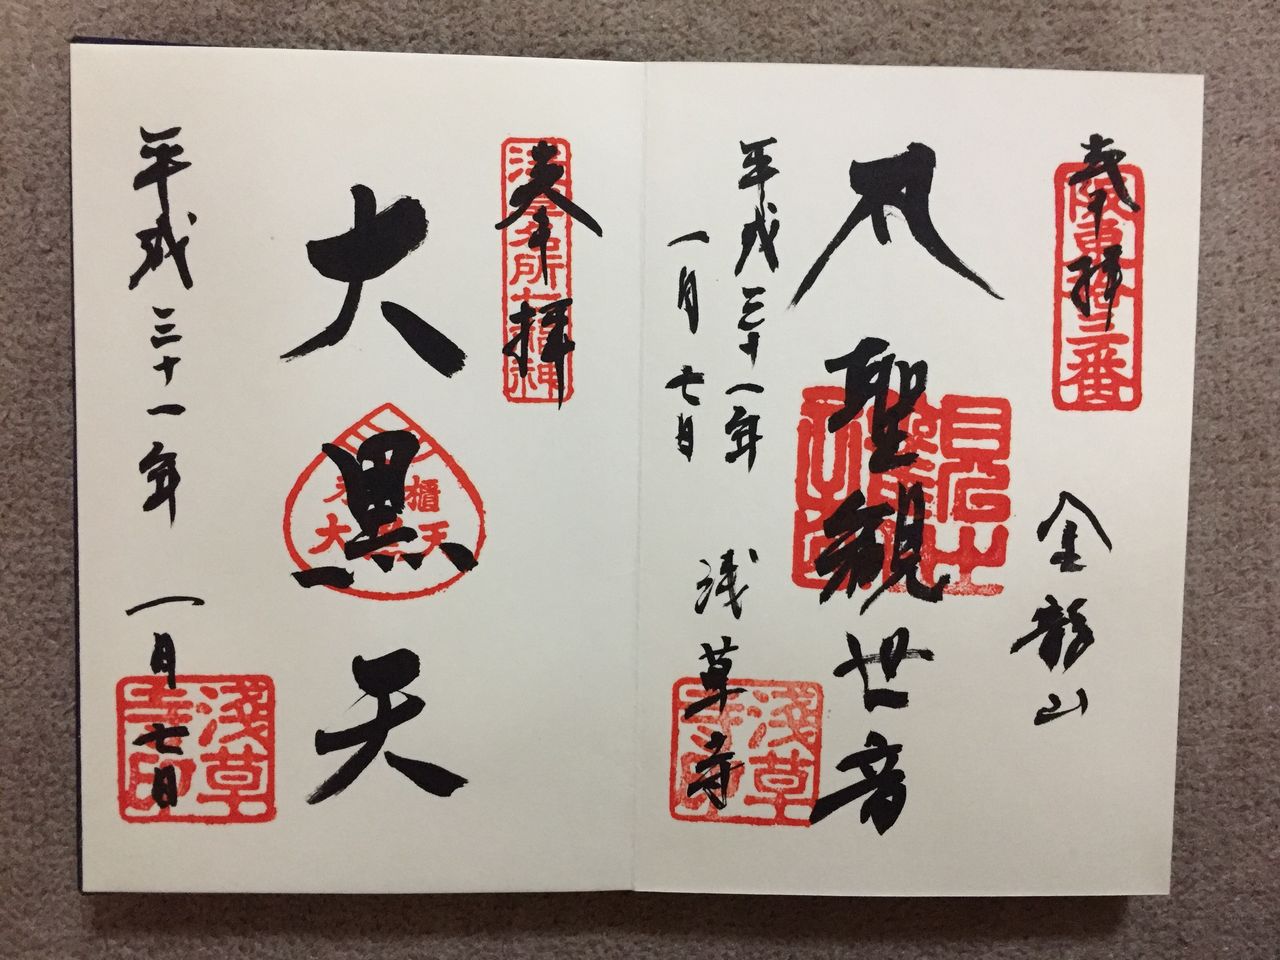 奉拝
坂東拾三番
金龍山
聖観世音
平成三十一年
一月七日
浅草寺
淺草寺印
奉拝
浅草名所七福神
大黒天
米櫃
大黒天
平成三十一年
一月七日
淺草寺印